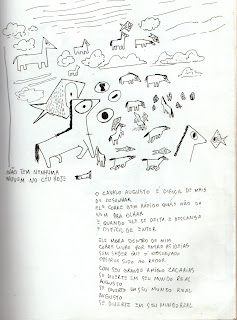 NÃO TEM NENHUMA
NUVEM NO CÉU HOJE
O CAVALO AUGUSTO É DIFÍCIL DE MAIS
DE DESENHAR
ELE CORRE BEM RÁPIDO QUASE NÃO DÁ
NEM PRA OLHAR
E QUANDO ELE SE DEITA E DESCANSA
É DIFÍCIL DE
ELE MORA DENTRO DE MIM
CORRE LIVRO POR ENTRE AS IDÉIAS
SEM SABER QUE É DESENHADO
AO REDOR
COM SEU GRANDE AMIGO ZACARIAS
SE DIVERTE EM SEU MUNDO REAL
AUGUSTO
SE DIVERTE EM SEU MUNDO REAL
AUGUSTO
SE DIVERTE EM SEU MUNDO REAL